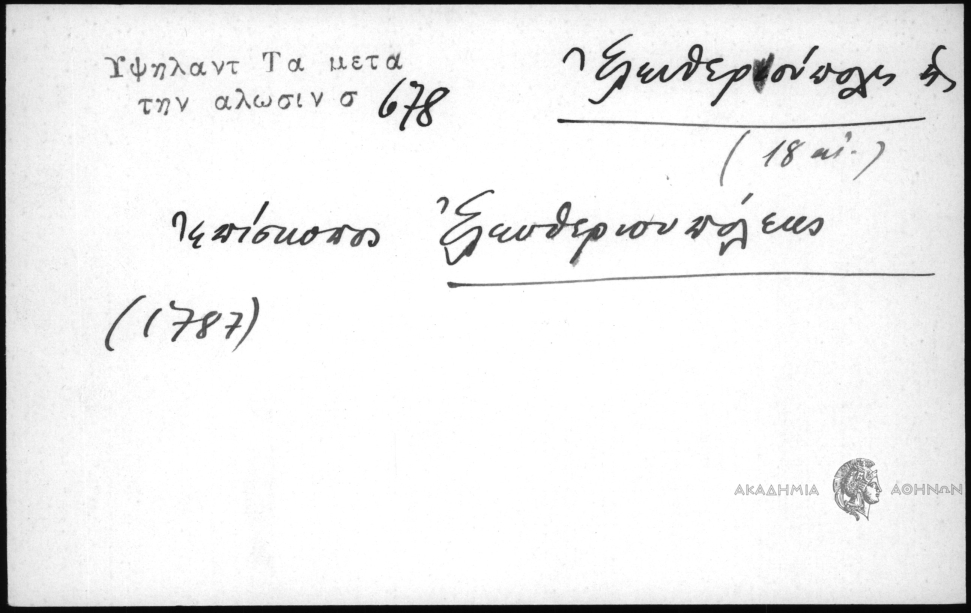 Υψηλαντ Τα μετα
την αλωσιν σ 678
Ἐλευθεριούπολις ἡ
(18 αἰ.)
ἐπίσκοπος Ἐλευθεριουπόλεως
(1787)
ΑΚΑΔΗΜΙΑ ΑΘΗΝΩΝ